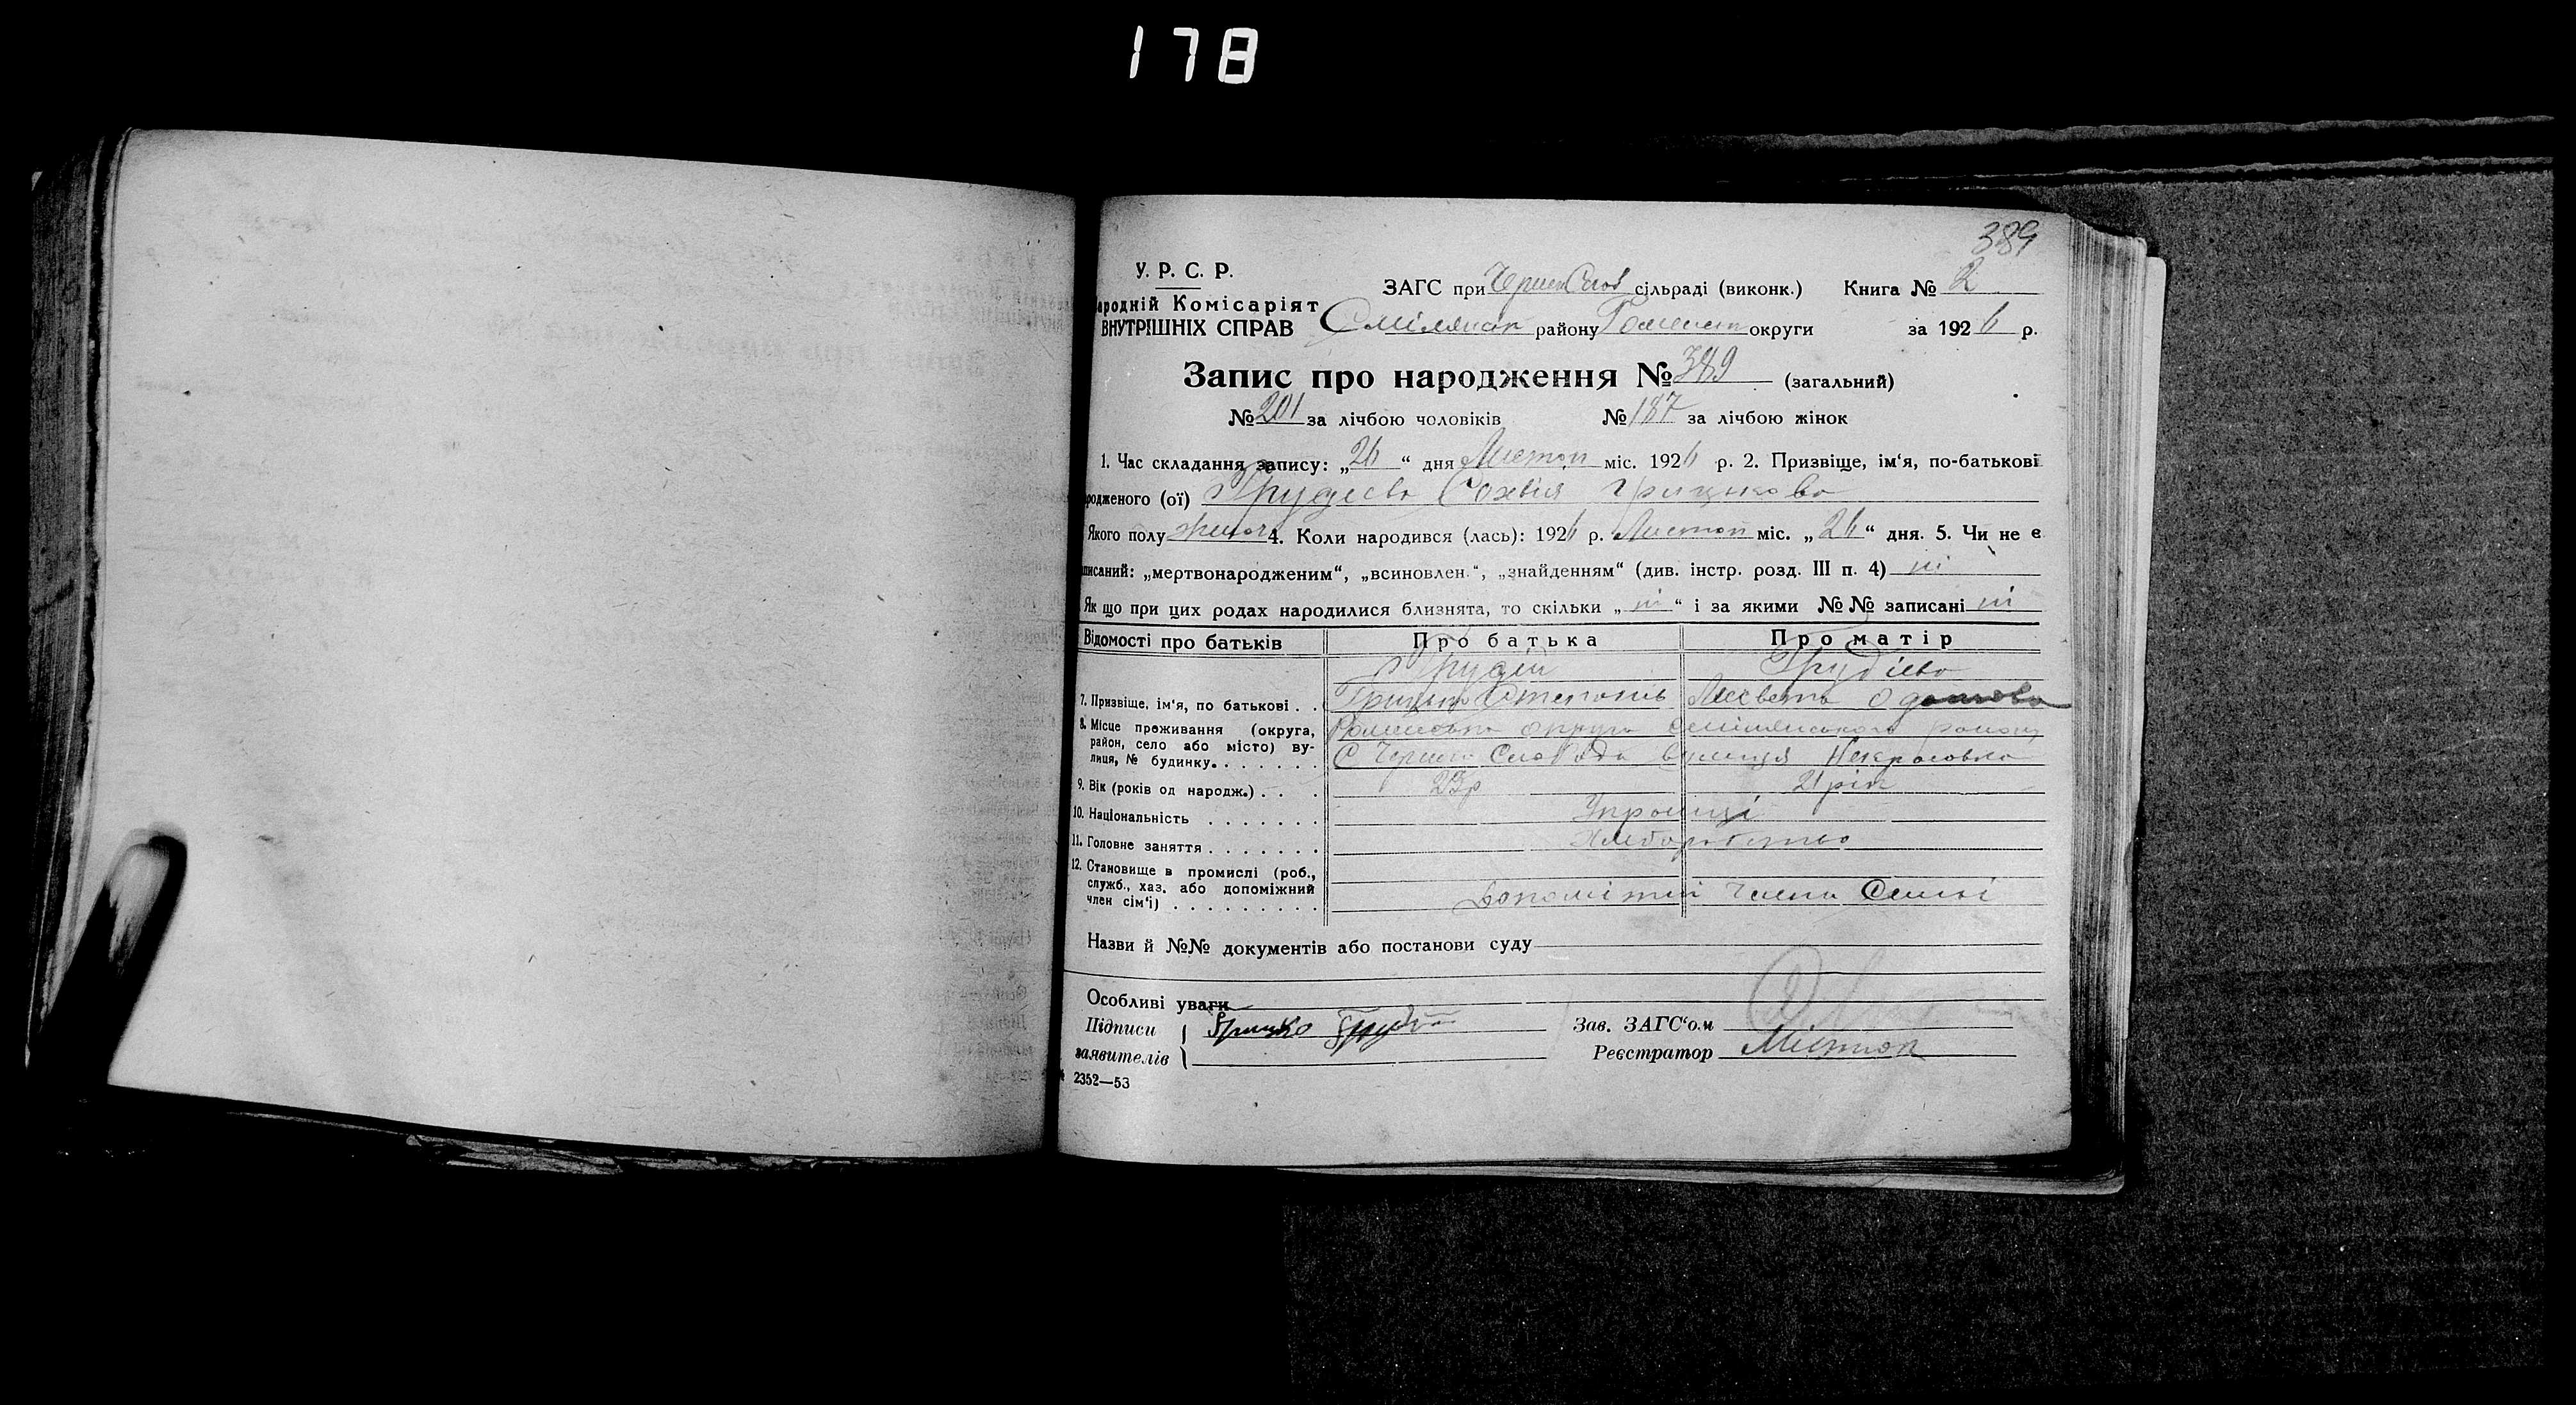 178
389
У. Р. С. Р.
ародній Комісаріят
ВНУТРІШНІХ СПРАВ
ЗАГС при сільраді (виконк.) Книга № 2
Смілянск району округи за 1926 р.
Запис про народження № 389 (загальний)
№ 201 за лічбою чоловіків № 187 за лічбою жінок
1. Час складання запису: „26“ дня Листоп міс. 1926 р. 2. Призвіще, ім‘я, по-батькові
родженого (ої) Грудієва Софія Грицькова
Якого полу жіноч 4. Коли народився (лась): 1926 р. Листоп міс. „26“ дня. 5. Чи не є
писаний: „мертвонародженим“, „всиновлен.“, „знайденням“ (див. інстр. розд. III п. 4) ні
Як що при цих родах народилися близнята, то скільки „ні“ і за якими №№ записані ні
Відомості про батьків Про батька Про матір
Грудій Грудієва
7. Призвіще, ім‘я, по батькові . . Грицько Степанів
8. Місце проживання (округа, район, село або місто) вулиця, № будинку. Роменська округа Смілянського району
С Чернеча Слобода вулиця Некрасовка
9. Вік (років од народж.) . . . 23р 21 рік
10. Національність . . . . . . . Українці
11. Головне заняття . . . . . . . Хліборобство
12. Становище в промислі (роб.,
служб., хаз. або допоміжний
член сім‘ї) . . . . . . . . . члени Семьі
Назви й №№ документів або постанови суду
Особливі уваги
Підписи { Грицько Грудій Зав. ЗАГС‘ом
заявителів } Реєстратор
2352—53